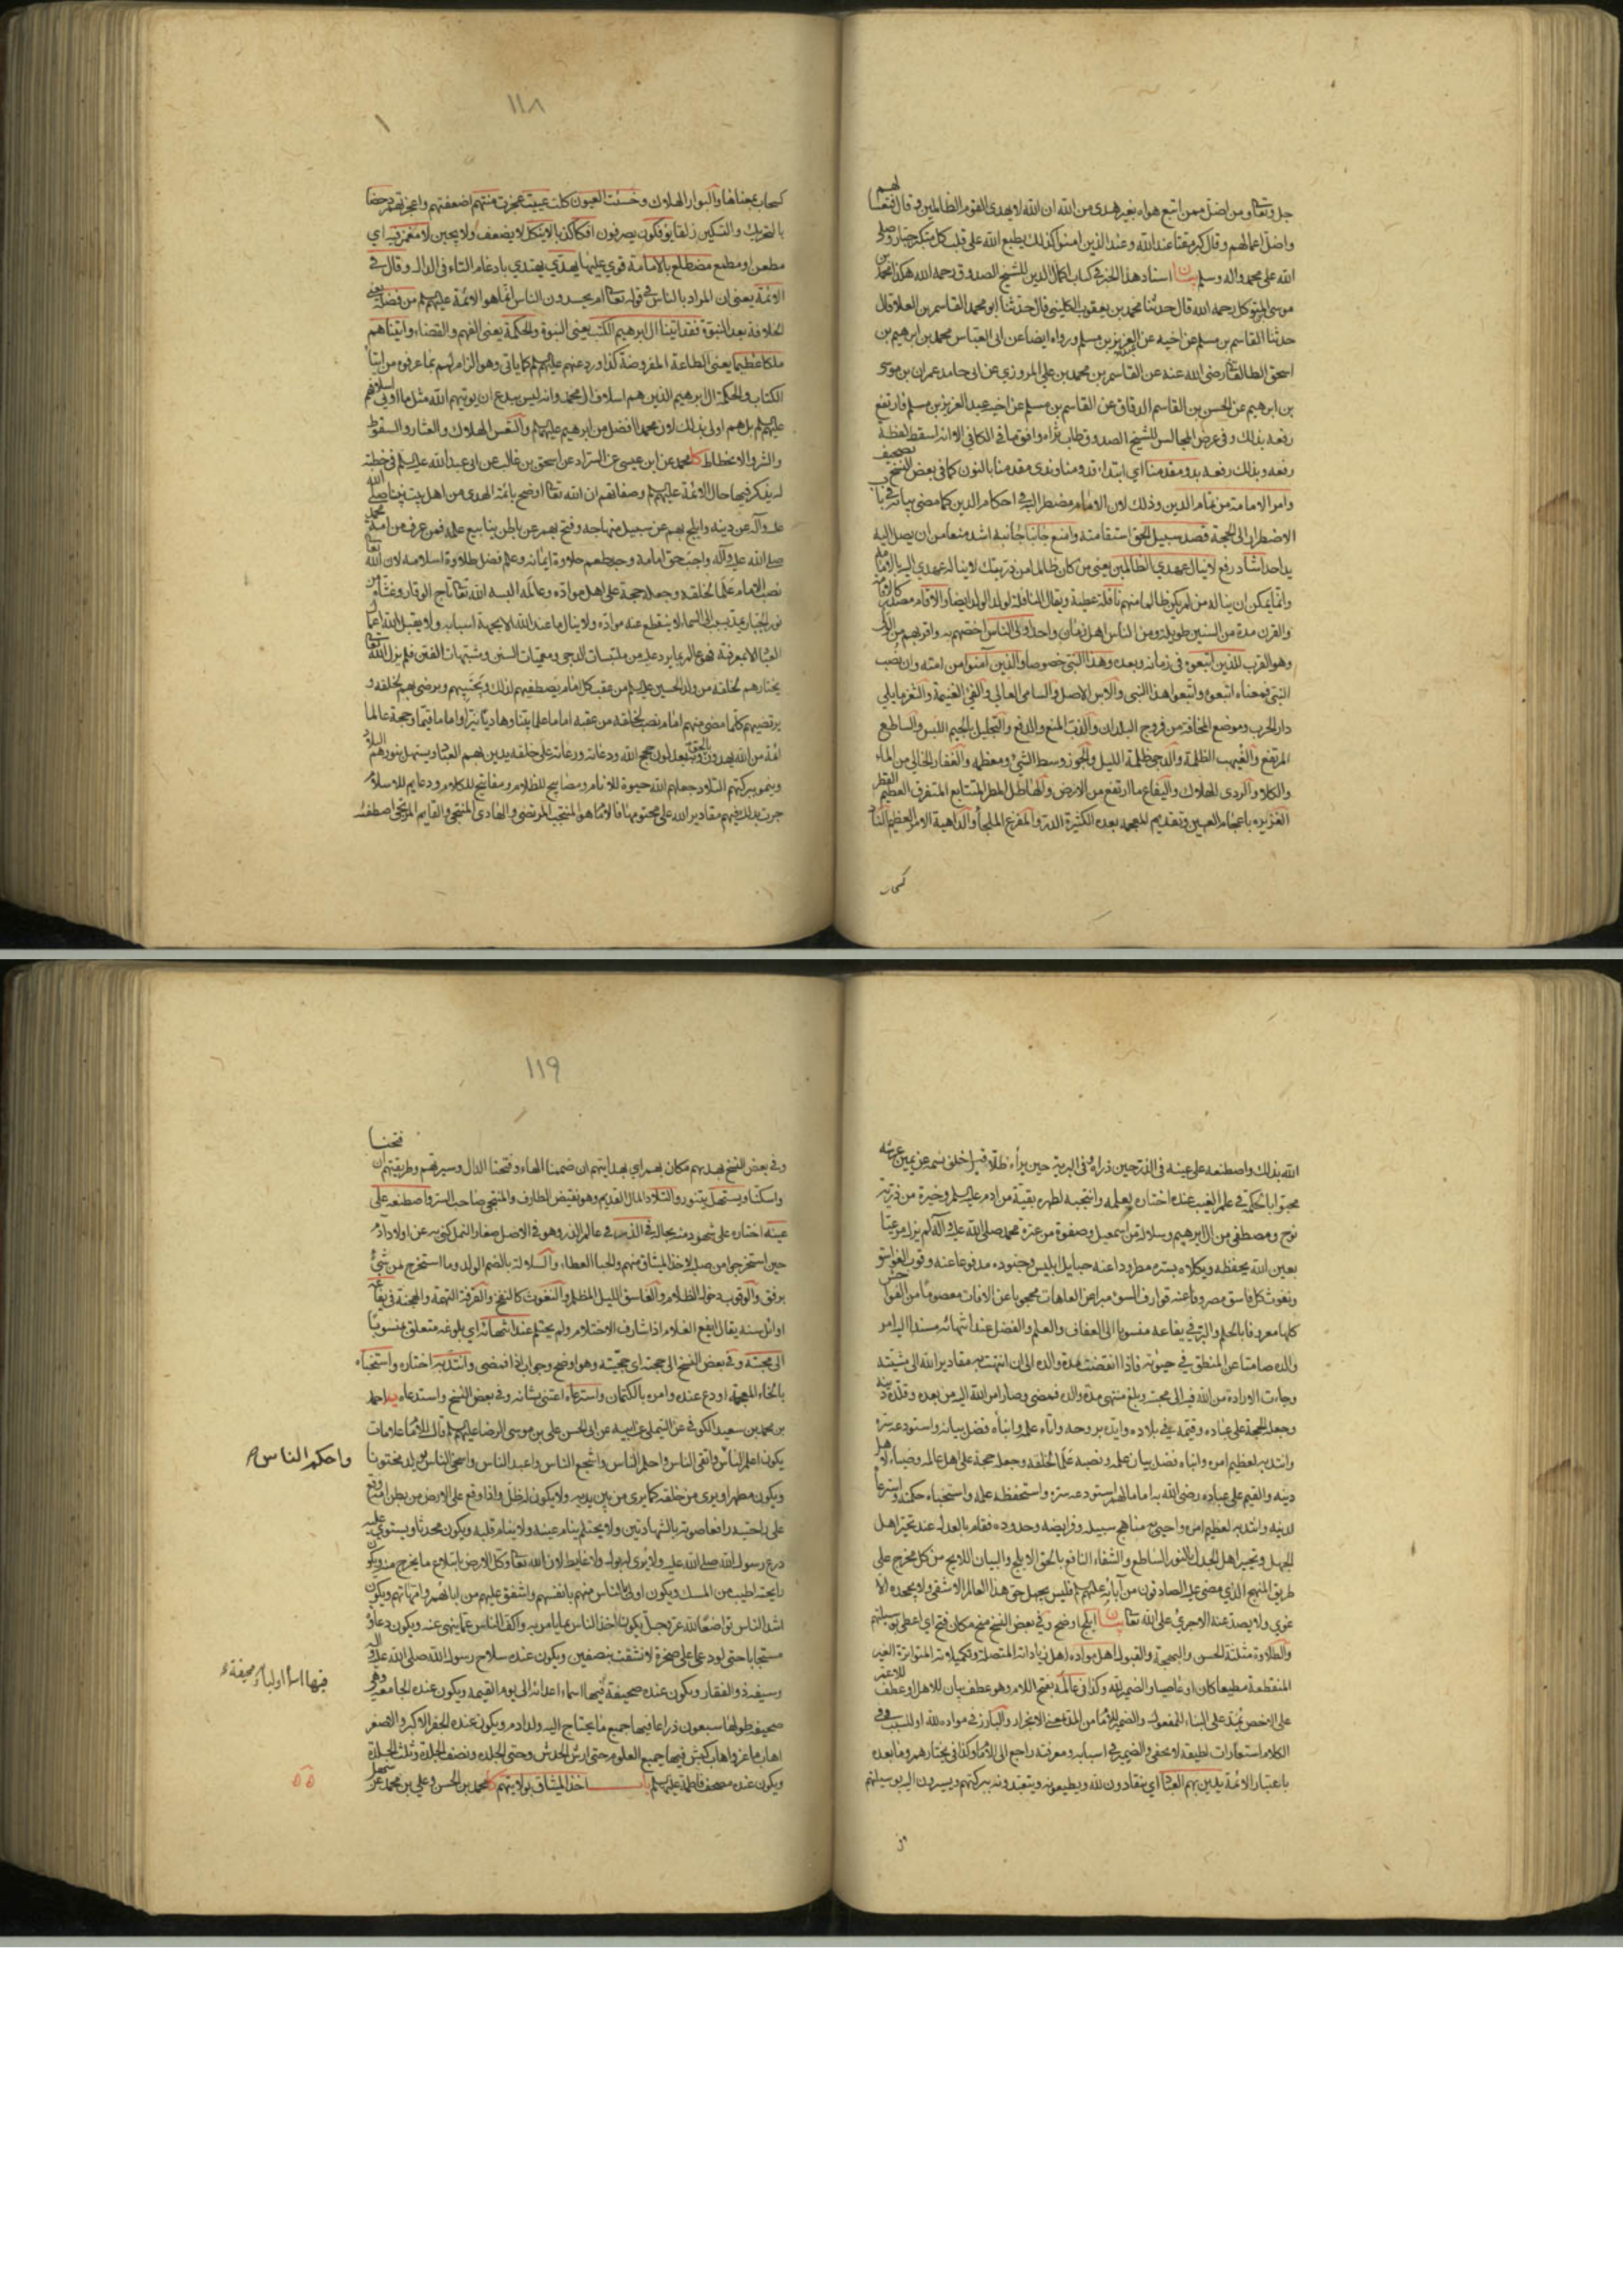 جل وتعالى ومن اضل ممن اتبع هواه بغير هدى من الله ان الله لا يهدى القوم الظالمين وقال فتعسا لهم
واضل اعمالهم وقال كبر مقتا عند الله وعند الذين امنوا كذلك يطبع الله على قلب كل متكبر جبار وصلى
الله على محمد واله وسلم بيان اسناد هذا الخبر في كتاب اكمال الدين للشيخ الصدوق رحمه الله هكذا محمد بن
موسى المتوكل رحمه الله قال حدثنا محمد بن يعقوب الكليني قال حدثنا ابو محمد القاسم بن العلا قال
حدثنا القاسم بن مسلم عن اخيه عبد العزيز بن مسلم ورواه ايضا عن ابى العباس محمد بن ابرهيم بن
اسحق الطالقانى رضى الله عنه عن القاسم بن محمد بن على المروزي عن ابى حامد عمران بن موسى
بن ابرهيم عن الحسن بن القاسم الدقاق عن القاسم بن مسلم عن اخيه عبد العزيز بن مسلم فارتفع
رفعه بذلك وفى عرض المجالس للشيخ الصدوق طاب ثراه وافق ما فى الكافى الا انه اسقط لفظة
وامر الامامة من تمام الدين وذلك لان الامام مضطر اليه في احكام الدين كما مضى بيانه في باب
الاضطرار الى الحجة قصد سبيل الحق استقامته وامنع جانبا جانبه اشد منعا من ان يصل اليه
يد احد اشاد رفع لا ينال عهدي الظالمين يعنى من كان ظالما من ذريتك لا يناله عهدى اليه بالامامة
وانما يمكن ان يناله من لم يكن ظالما منهم نافلة عطية ويقال النافلة لولد الولد ايضا والاقام مصدر كالاقامة
والقرن مدة من السنين طويلة ومن الناس اهل زمان واحد اولى الناس اخصهم به واقربهم من الولى
وهو القرب للذين اتبعوه فى زمانه وبعده وهذا النبى خصوصا والذين آمنوا من امته وان نصب
النبى فمعناه اتبعوه واتبعوا هذا النبى والاس الاصل والسامى العالى والفئ الغنيمة والثغر ما يلى
دار الحرب وموضع المخافة من فروج البلدان والذب المنع والدفع والتجليل بالجيم اللبس والساطع
المرتفع والغيهب الظلمة والدجى ظلمة الليل والجوز وسط الشئ ومعظمه والقفار الخالى من الماء
والكلاء والردى الهلاك واليفاع ما ارتفع من الارض والهاطل المطر المتتابع المتفرق العظيم القطر
الغزيرة باعجام الغين وتقديم المعجمة بعده الكثيرة الدر والمفزع الملجأ والداهية الامر العظيم الناد
كسحاب
١١٨
كسحاب بمعناها والبوار الهلاك وخسئت العيون كلت عييت عجزت منتهم اضعفتهم واعجزتهم دحضا
بالتحريك والتسكين زلقا يؤفكون يصرفون افكا كذبا لا ينكل لا يضعف ولا يجبن لا مغمز فيه اي
مطعن او مطمع مضطلع بالامامة قوي عليها يهدّي يهتدي بادغام التاء فى الدال وقال فى
الائمة يعنى ان المراد بالناس فى قوله تعالى ام يحسدون الناس انما هو الائمة عليهم السلم من فضله يعنى
الخلافة بعد النبوة فقد اتينا ال ابرهيم الكتب يعنى النبوة والحكمة يعنى الفهم والقضاء واتيناهم
ملكا عظيما يعنى الطاعة المفروضة كذا ورد عنهم عليهم السلم كما ياتى وهو الزام لهم بما عرفوه من ايتاء
الكتاب والحكمة ال ابرهيم الذين هم اسلاف ال محمد وانه ليس ببدع ان يوتيهم الله مثل ما اوتى اسلافهم
عليهم السلم بل هم اولى بذلك لان محمدا افضل من ابرهيم عليهما السلم والتعس الهلاك والعثار والسقوط
والشر والانحطاط كا محمد عن ابن عيسى عن السراد عن اسحق بن غالب عن ابى عبد الله عليه السلم فى خطبة
له يذكر فيها حال الائمة عليهم السلم وصفاتهم ان الله تعالى اوضح بائمة الهدى من اهل بيت نبينا صلى الله
عليه وآله عن دينه وابلج بهم عن سبيل منهاجه وفتح بهم عن باطن ينابيع علمه فمن عرف من امة محمد
صلى الله عليه وآله واجب حق امامه وجد طعم حلاوة ايمانه وعلم فضل طلاوة اسلامه لان الله تعالى
نصب الامام علما لخلقه وجعله حجة على اهل مواده وعالمه البسه الله تعالى تاج الوقار وغشاه من
نور الجبار يمد بسبب الى السماء لا ينقطع عنه مواده ولا ينال ما عند الله الا بجهة اسبابه ولا يقبل الله اعمال
العباد الا بمعرفته فهو عالم بما يرد عليه من ملتبسات الدجى ومعميات السنن ومشبهات الفتن فلم يزل الله تعالى
يختارهم لخلقه من ولد الحسين عليه السلم من عقب كل امام يصطفيهم لذلك ويجتبيهم ويرضى بهم لخلقه و
يرتضيهم كلما مضى منهم امام نصب لخلقه من عقبه اماما علما بينا وهاديا نيرا واماما قيما وحجة عالما
ائمة من الله يهدون بالحق وبه يعدلون حجج الله ودعاته ورعاته على خلقه يدين بهديهم العباد ويستهل بنورهم البلاد
وينمو ببركتهم التلاد جعلهم الله حيوة للانام ومصابيح للظلام ومفاتيح للكلام ودعايم للاسلام
جرت بذلك فيهم مقادير الله على محتومها فالامام هو المنتجب المرتضى والهادى المنتجى والقايم المرتجى اصطفاه
الله بذلك واصطنعه على عينه فى الذر حين ذرأه وفى البرية حين برأه ظلا قبل خلق نسمة عن يمين عرشه
محبوا بالحكمة فى علم الغيب عنده اختاره بعلمه وانتجبه لطهره بقية من ادم عليه السلم وخيرة من ذرية
نوح ومصطفى من ال ابرهيم وسلالة من اسمعيل وصفوة من عترة محمد صلى الله عليه وآله لم يزل مرعيا
بعين الله يحفظه ويكلاه بستره مطرودا عنه حبايل ابليس وجنوده مدفوعا عنه وقوب الغواسق
ونفوث كل فاسق مصروفا عنه قوارف السوء مبرا من العاهات محجوبا عن الافات معصوما من الفواحش
كلها معروفا بالحلم والبر فى يفاعه منسوبا الى العفاف والعلم والفضل عند انتهائه مسندا اليه امر
والده صامتا عن المنطق في حيوته فاذا انقضت مدة والده الى ان انتهت به مقادير الله الى مشيته
وجاءت الارادة من الله فيه الى محبته وبلغ منتهى مدة والده فمضى وصار امر الله اليه من بعده وقلده دينه
وجعله الحجة على عباده وقيمه فى بلاده وايده بروحه واتاه علمه وانباه فضل بيانه واستودعه سره
وانتدبه لعظيم امره وانباه فضل بيان علمه ونصبه علما لخلقه وجعله حجة على اهل عالمه وضياء لاهل
دينه والقيم على عباده رضى الله به اماما لهم استودعه سره واستحفظه علمه واستخباه حكمته واسترعاه
لدينه وانتدبه لعظيم امره واحيى به مناهج سبيله وفرايضه وحدوده فقام بالعدل عند تحير اهل
الجهل وتحيير اهل الجدل بالنور الساطع والشفاء النافع بالحق الابلج والبيان اللايح من كل مخرج على
طريق المنهج الذي مضى عليه الصادقون من آبائه عليهم السلم فليس يجهل حق هذا العالم الا شقى ولا يجحده الا
غوي ولا يصد عنه الا جرئ على الله تعالى بيان ابلج اوضح وفى بعض النسخ منح مكان فتح اي اعطى بوسيلتهم
والطلاوة مثلثة الحسن والبهجة والقبول اهل مواده اهل زياداته المتصلة وتكميلاته المتواترة الغير
المنقطعة مطيعا كان او عاصيا والضمير لله وكذا فى عالمه بفتح اللام وهو عطف بيان للاهل او عطف للاعم
على الاخص يمد على البناء للمفعول والضمير للامام من المد بمعنى الانجرار والبارز فى مواده لله او للسبب وفى
الكلام استعارات لطيفة لا تخفى والضمير فى اسبابه ومعرفته راجع الى الامام وكذا فى يختارهم وما بعده
باعتبار الائمة يدين بهم العباد اي ينقادون لله ويطيعونه ويتعبدونه ببركتهم ويسيرون اليه بوسيلتهم
وفى
١١٩
وفى بعض النسخ بهديهم مكان بهم اي بهدايتهم ان ضممنا الهاء وفتحنا الدال وسيرتهم وطريقتهم ان فتحنا
واسكنا ويستهل يتنور والتلاد المال القديم وهو نقيض الطارف والمنتجى صاحب السر واصطنعه على
عينه اختاره على شهود منه بحاله فى الذر فى عالم الذر وهو فى الاصل صغار النمل كنى به عن اولاد ادم
حين استخرجوا من صلبه لاخذ الميثاق منهم والحبا العطاء والسلالة بالضم الولد وما استخرج من شئ
برفق والوقوب دخول الظلام والغاسق الليل المظلم والنفوث كالنفخ والقرفة التهمة والهجنة فى يفاعه
اوائل سنه يقال ايفع الغلام اذا شارف الاحتلام ولم يحتلم عند انتهائه اي بلوغه متعلق بمنسوبا
الى محبته وفى بعض النسخ الى حجته اي حجيته وهو اوضح وجواب اذا فمضى وانتدبه اختاره واستخباه
بالخاء المعجمة اودع عنده وامره بالكتمان واسترعاه اعتنى بشانه وفى بعض النسخ واستدعاه يه احمد
بن محمد بن سعيد الكوفى عن التيملى عن ابيه عن ابى الحسن على بن موسى الرضا عليهم السلم قال للامام علامات
يكون اعلم الناس واتقى الناس واحلم الناس واشجع الناس واعبد الناس واسخى الناس ويولد مختونا
واحكم الناس
ويكون مطهرا ويرى من خلفه كما يرى من بين يديه ولا يكون له ظل واذا وقع على الارض من بطن امه وقع
على راحتيه رافعا صوته بالشهادتين ولا يحتلم ينام عينه ولا ينام قلبه ويكون محدثا ويستوي عليه
درع رسول الله صلى الله عليه وآله ولا يرى له بول ولا غايط لان الله تعالى وكل الارض بابتلاع ما يخرج منه ويكون
رايحته اطيب من المسك ويكون اولى بالناس منهم بانفسهم واشفق عليهم من ابائهم وامهاتهم ويكون
اشد الناس تواضعا لله عز وجل ويكون اخذ الناس بما يامر به واكف الناس عما ينهى عنه ويكون دعاؤه
مستجابا حتى لو دعا على صخرة لانشقت بنصفين ويكون عنده سلاح رسول الله صلى الله عليه وآله
وسيفه ذو الفقار ويكون عنده صحيفة فيها اسماء اعدائه الى يوم القيمة ويكون عنده الجامعة وهى
فيها اسماء اوليائه صحيفة
صحيفة طولها سبعون ذراعا فيها جميع ما يحتاج اليه ولد ادم ويكون عنده الجفر الاكبر والاصغر
اهاب ماعز واهاب كبش فيها جميع العلوم حتى ارش الخدش وحتى الجلدة ونصف الجلدة وثلث الجلدة
ويكون عنده مصحف فاطمة عليها السلم باب اخذ الميثاق بولايتهم كا محمد بن الحسن وعلى بن محمد عن سهل